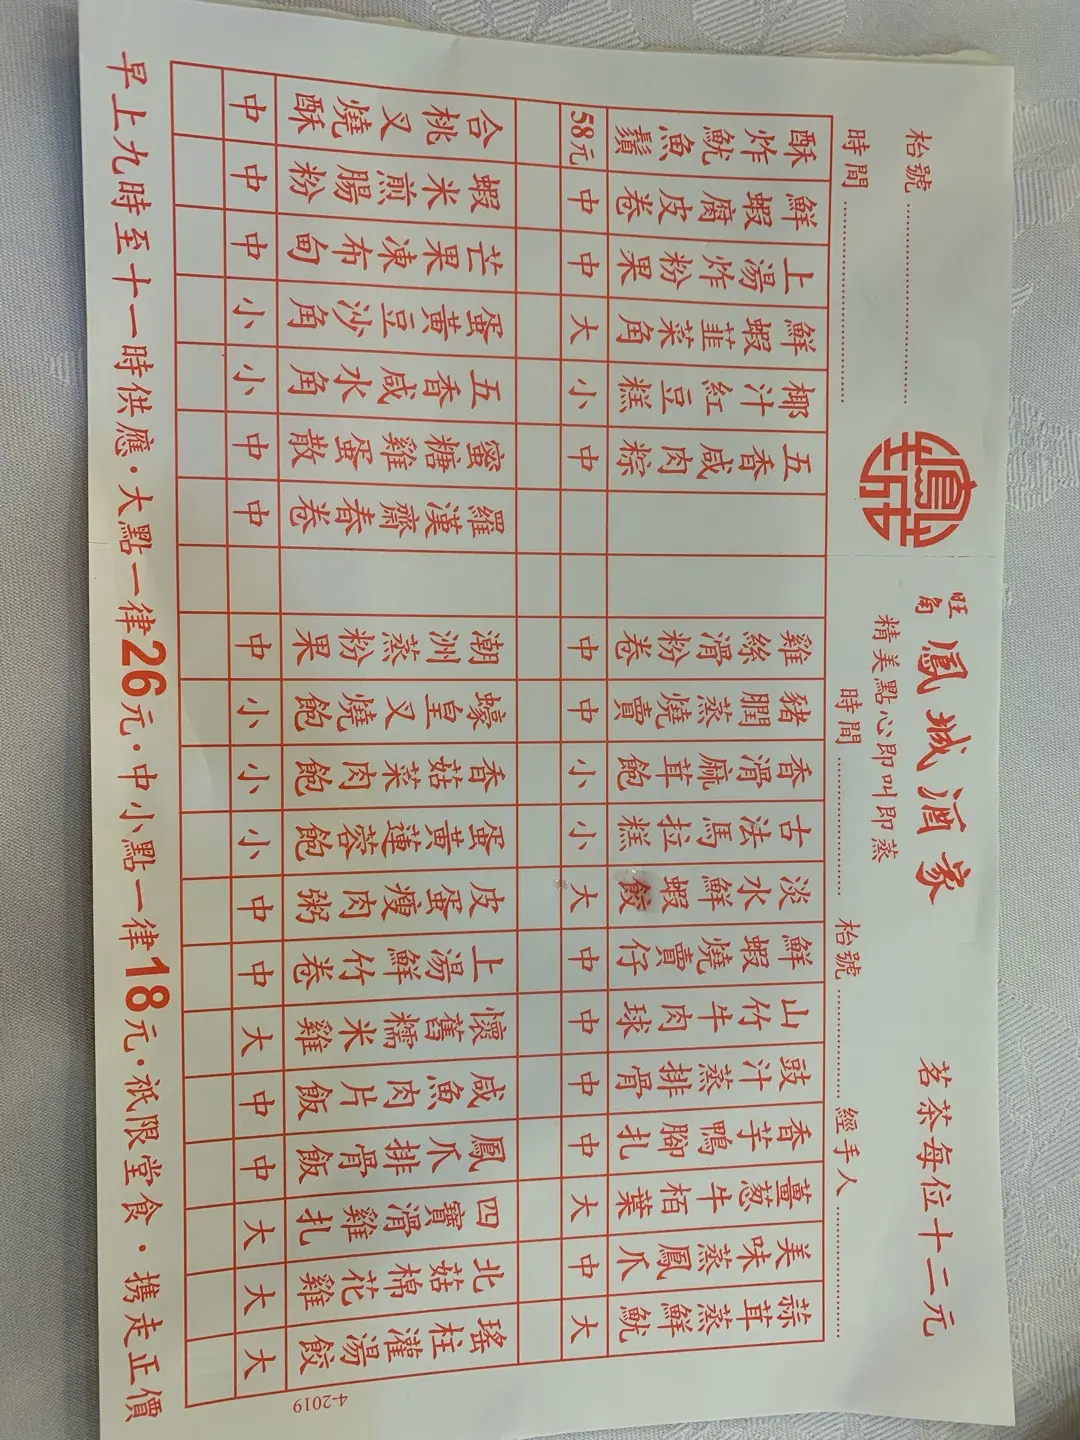 枱號
時間
鳳城
旺角 鳳城酒家
精美點心即叫即蒸
茗茶每位十二元
時間 枱號 經手人
蒜茸蒸鮮魷 大
美味蒸鳳爪 中
薑葱牛栢葉 大
香芋鴨腳扎 中
豉汁蒸排骨 中
山竹牛肉球 中
鮮蝦燒賣仔 中
淡水鮮蝦餃 大
古法馬拉糕 小
香滑麻茸飽 小
豬膶蒸燒賣 中
雞絲滑粉卷 中
五香咸肉粽 中
椰汁紅豆糕 小
鮮蝦韮菜角 大
上湯炸粉果 中
鮮蝦腐皮卷 中
酥炸魷魚鬚 58元
瑤柱灌湯餃 大
北菇棉花雞 大
四寶滑雞扎 大
鳳爪排骨飯 中
咸魚肉片飯 中
懷舊糯米雞 大
上湯鮮竹卷 中
皮蛋瘦肉粥 中
蛋黃蓮蓉飽 小
香菇菜肉飽 小
蠔皇叉燒飽 小
潮洲蒸粉果 中
羅漢齋春卷 中
蜜糖雞蛋散 中
五香咸水角 小
蛋黃豆沙角 小
芒果凍布甸 中
蝦米煎腸粉 中
合桃叉燒酥 中
4-2019
早上九時至十一時供應·大點一律26元·中小點一律18元·祇限堂食·携走正價